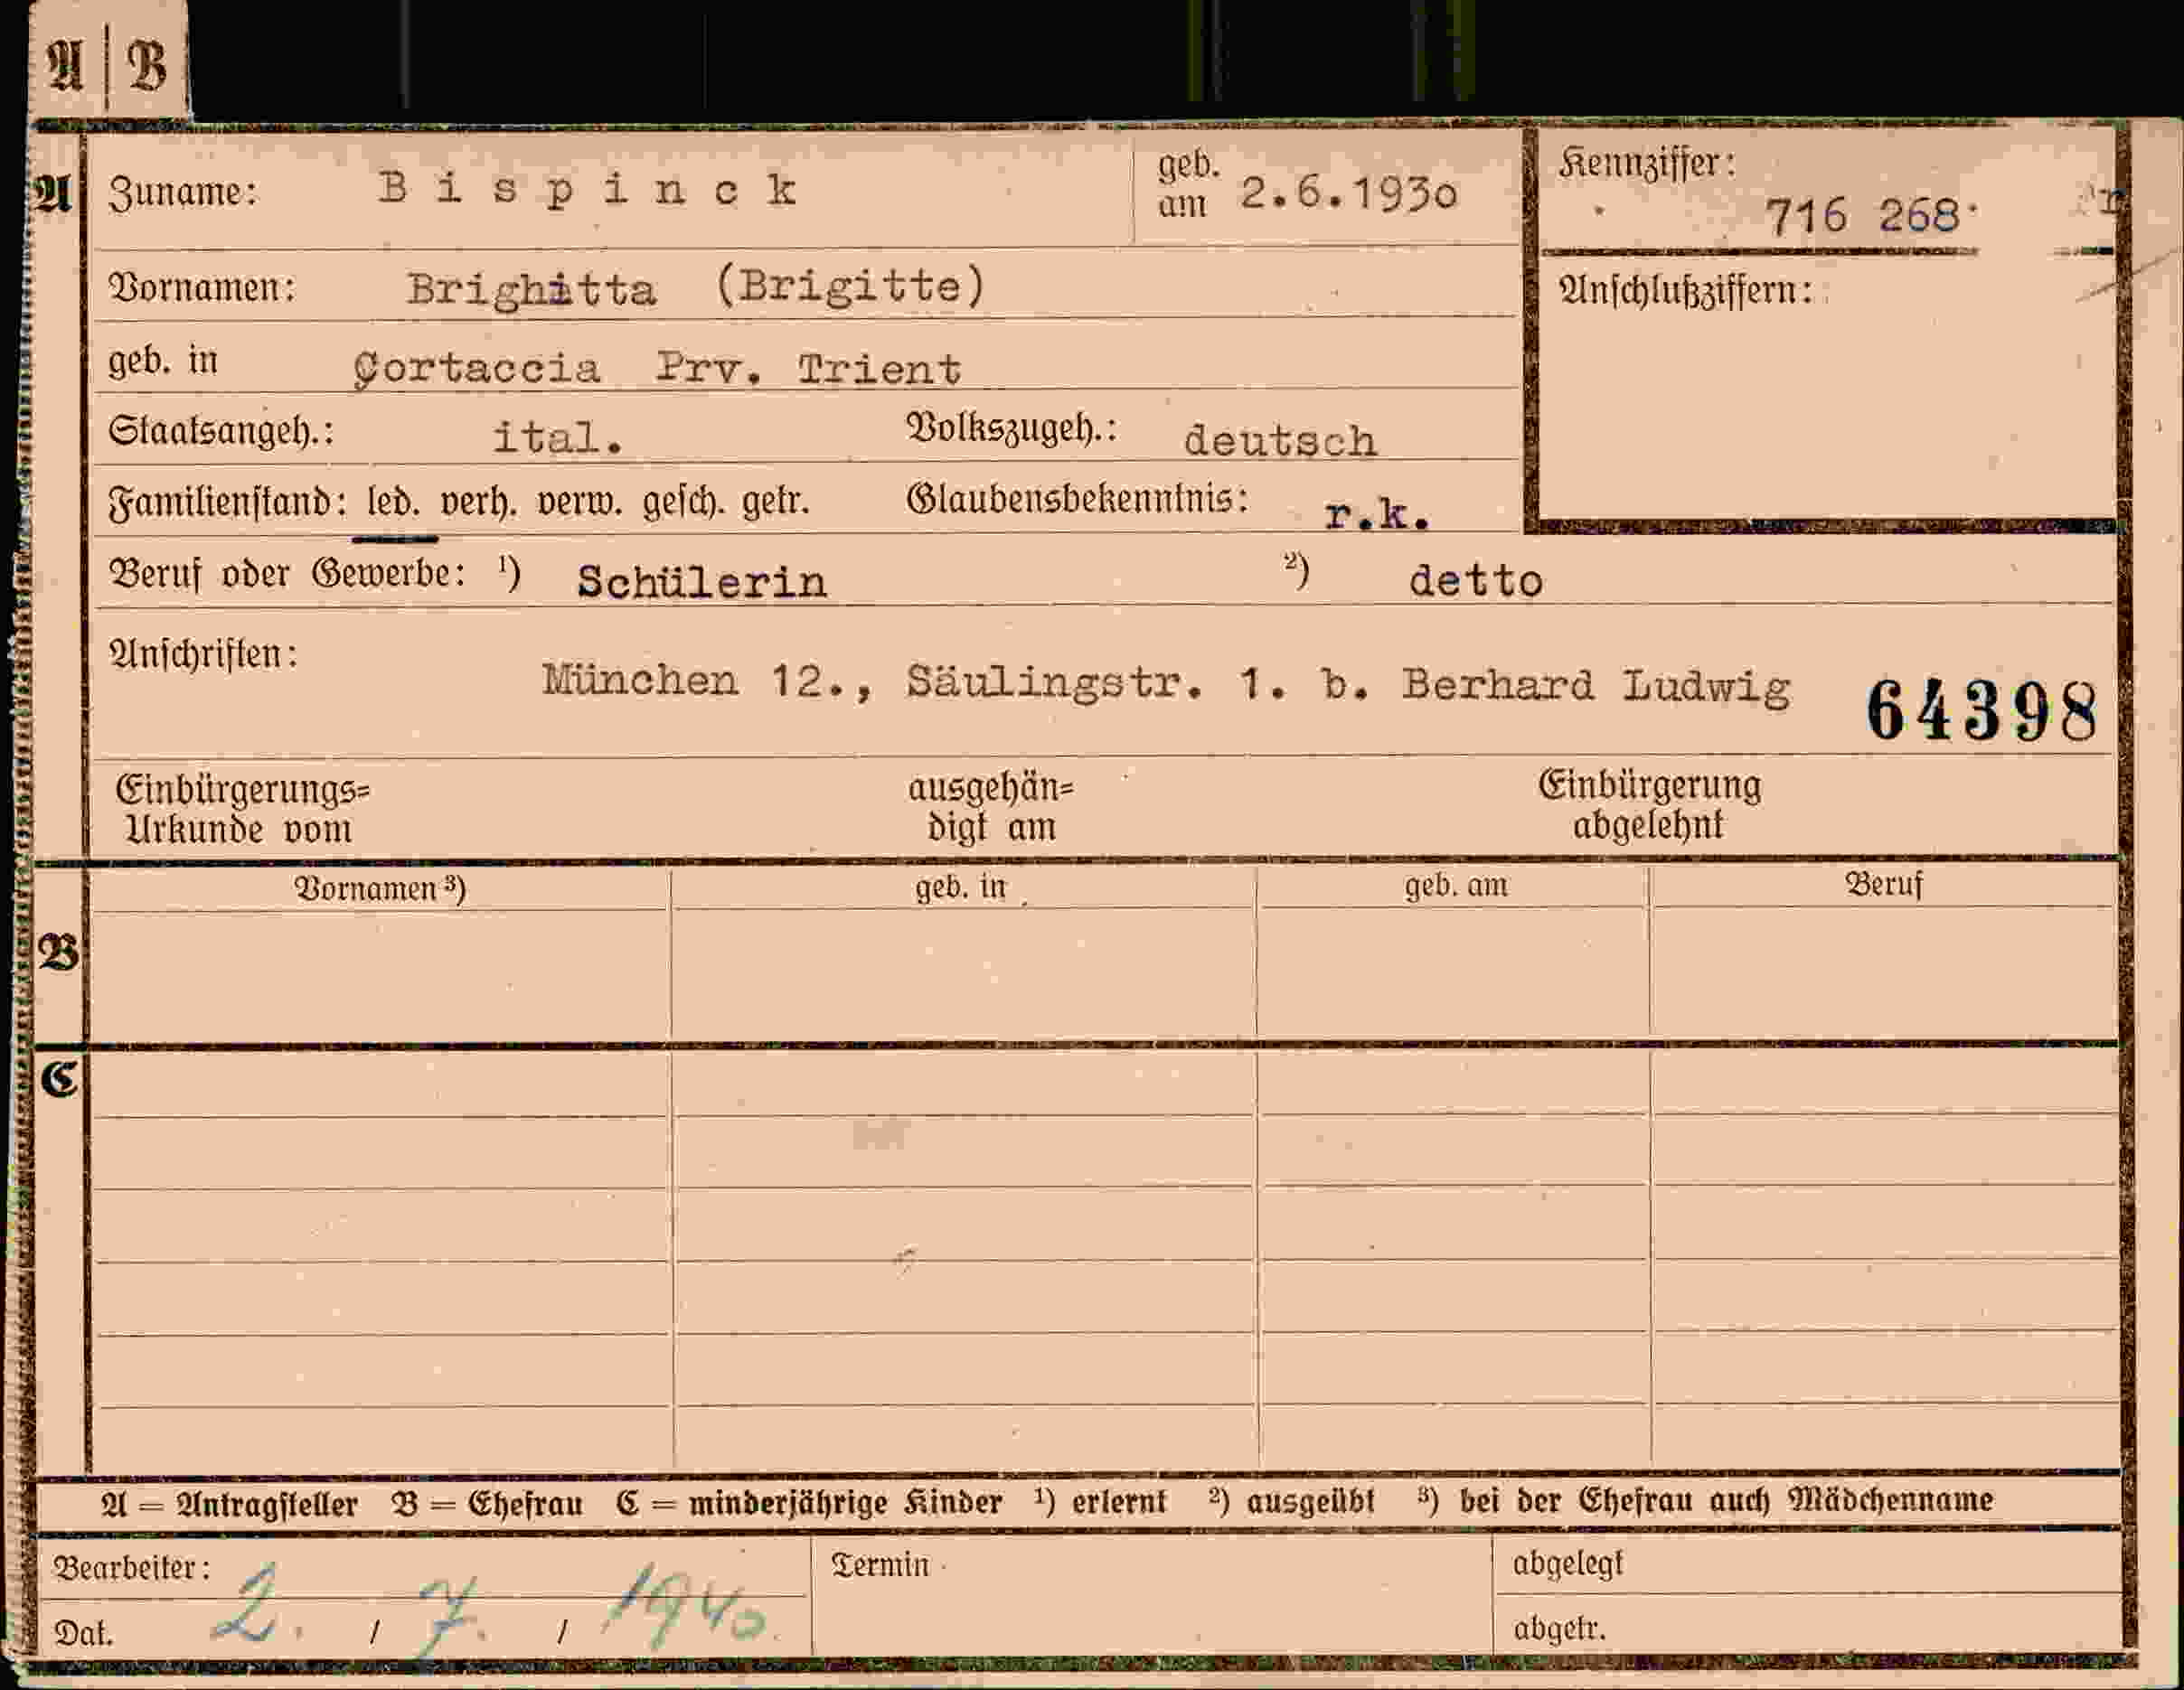 A | B
A
Zuname: Bispinck geb. am 2.6.1930
Kennziffer: 716 268
Vornamen: Brighitta (Brigitte)
Anschlußziffern:
geb. in Cortaccia Prv. Trient
Staatsangeh.: ital. Volkszugeh.: deutsch
Familienstand: led. verh. verw. gesch. getr. Glaubensbekenntnis: r.k.
Beruf oder Gewerbe: 1) Schülerin 2) detto
Anschriften:
München 12., Säulingstr. 1. b. Berhard Ludwig 64398
Einbürgerungs= ausgehän= Einbürgerung
Urkunde vom digt am abgelehnt
Vornamen 3) geb. in geb. am Beruf
B
C
A = Antragsteller B = Ehefrau C = minderjährige Kinder 1) erlernt 2) ausgeübt 3) bei der Ehefrau auch Mädchenname
Bearbeiter: Termin abgelegt
Dat. 2. / 7. / 1940 abgetr.